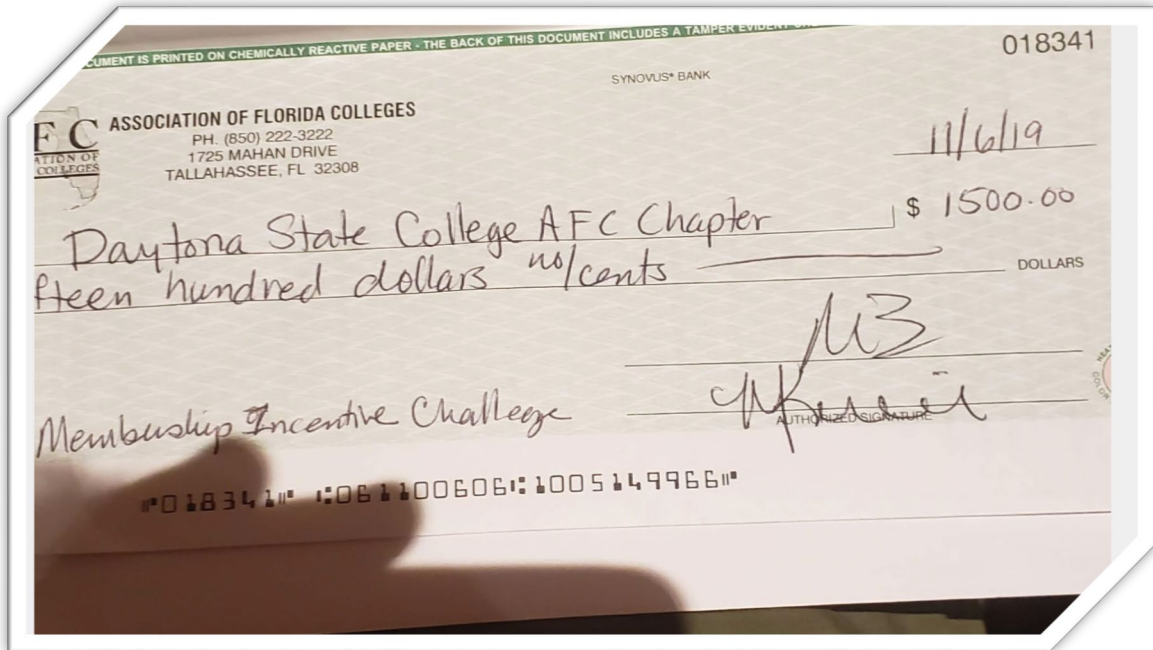 CUMENT IS PRINTED ON CHEMICALLY REACTIVE PAPER - THE BACK OF THIS DOCUMENT INCLUDES A TAMPER EVIDENT
018341
SYNOVUS® BANK
F C
ATION OF
COLLEGES
ASSOCIATION OF FLORIDA COLLEGES
PH. (850) 222-3222
1725 MAHAN DRIVE
TALLAHASSEE, FL 32308
11/6/19
Daytona State College AFC Chapter $ 1500.00
fteen hundred dollars no/cents DOLLARS
Membership Incentive Challege
AUTHORIZED SIGNATURE
⑈018341⑈ ⑆061100606⑆1005149966⑈